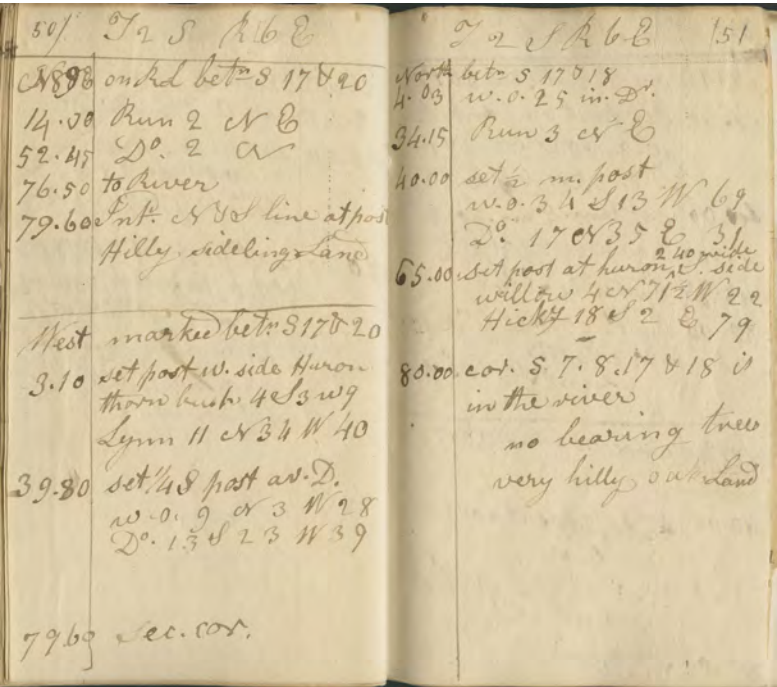 50 T 2 S R 6 E
N88E on Rd betn S 17 & 20
14.00 Run 2 N E
52.45 Do. 2 N
76.50 to River
79.60 Intd. N & S line at post
Hilly sideling Land
West marked betn S 17 & 20
3.10 set post w. side Huron
thorn bush 4 S 3 W 9
Lynn 11 N 34 W 40
39.80 set 1/4 S post av. D.
w.o. 9 N 3 W 28
Do. 13 S 23 W 39
79.69 Sec. cor.
T 2 S R 6 E 151
North betn S 17 & 18
4.03 w.o. 25 in. Dr.
34.15 Run 3 N E
40.00 set 1/2 m. post
w.o. 34 S 13 W 69
Do. 17 N 35 E 31
2 40 wide
65.00 set post at huron S. side
willow 4 N 71 1/2 W 22
Hicky 18 S 2 E 79
80.00 cor. S. 7. 8. 17 & 18 is
in the river
no bearing trees
very hilly oak Land